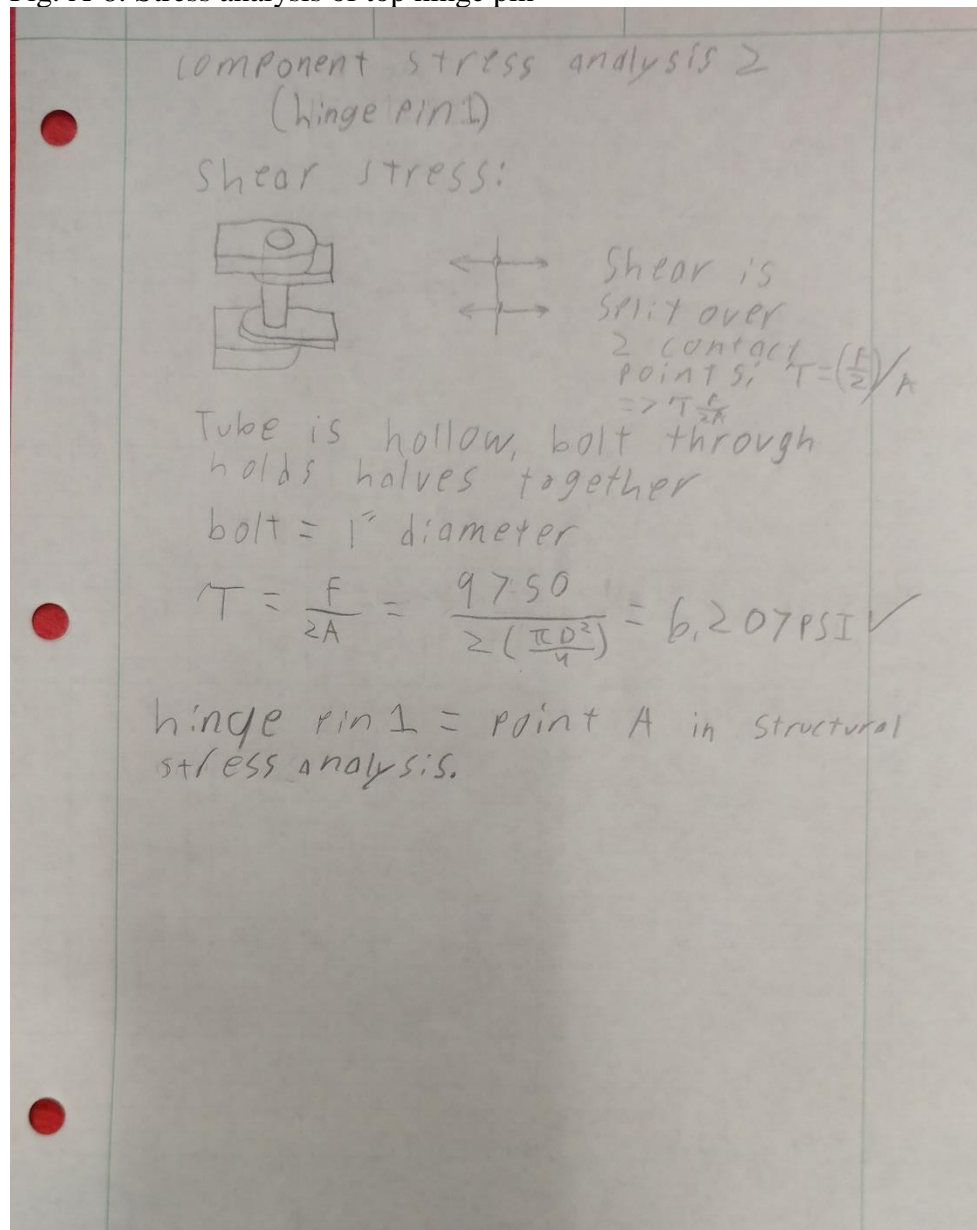 Fig. A-8: Stress analysis of top hinge pin
component stress analysis 2
(hinge pin 1)
Shear stress:
Shear is
split over
2 contact
points; τ=(F/2)/A
=> τ F/2A
Tube is hollow, bolt through
holds halves together
bolt = 1" diameter
τ = F/2A = 9750/2(πD²/4) = 6,207 PSI ✓
hinge pin 1 = point A in structural
stress analysis.